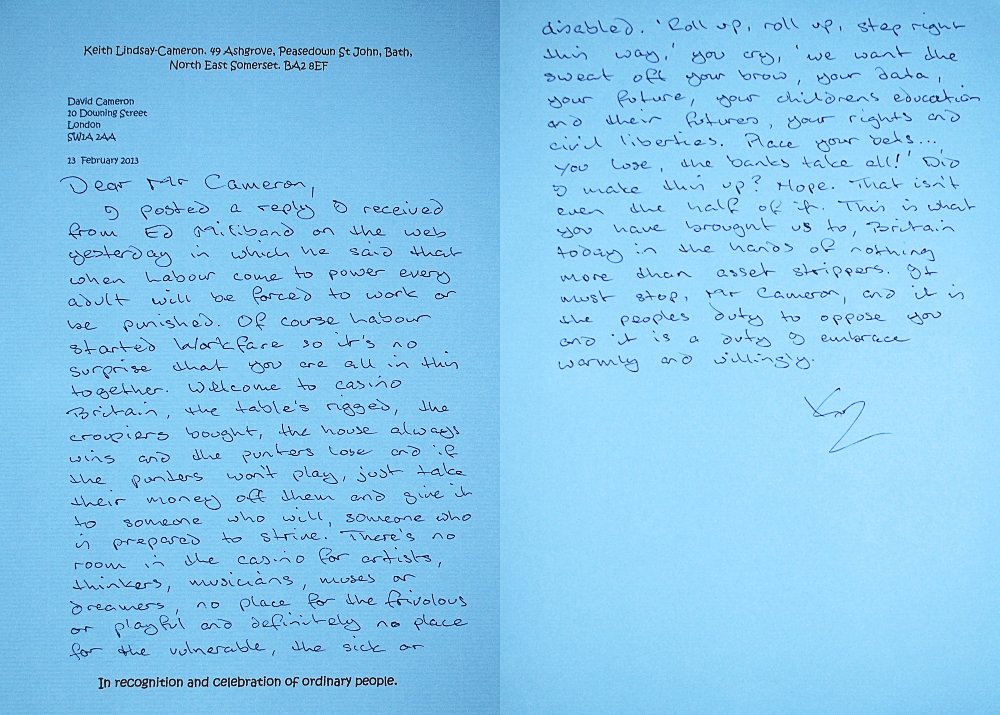 Keith Lindsay-Cameron. 49 Ashgrove, Peasedown St John, Bath,
North East Somerset. BA2 8EF
David Cameron
10 Downing Street
London
SW1A 2AA
13 February 2013
Dear Mr Cameron,
I posted a reply I received
from Ed Miliband on the web
yesterday in which he said that
when Labour come to power every
adult will be forced to work or
be punished. Of course Labour
started Workfare so it's no
surprise that you are all in this
together. Welcome to casino
Britain, the table's rigged, the
croupiers bought, the house always
wins and the punters lose and if
the punters won't play, just take
their money off them and give it
to someone who will, someone who
is prepared to strive. There's no
room in the casino for artists,
thinkers, musicians, muses or
dreamers, no place for the frivolous
or playful and definitely no place
for the vulnerable, the sick or
In recognition and celebration of ordinary people.
disabled. 'Roll up, roll up, step right
this way,' you cry, 'we want the
sweat off your brow, your data,
your future, your childrens education
and their futures, your rights and
civil liberties. Place your bets...
you lose, the banks take all!' Did
I make this up? Nope. That isn't
even the half of it. This is what
you have brought us to, Britain
today in the hands of nothing
more than asset strippers. It
must stop, Mr Cameron, and it is
the peoples duty to oppose you
and it is a duty I embrace
warmly and willingly.